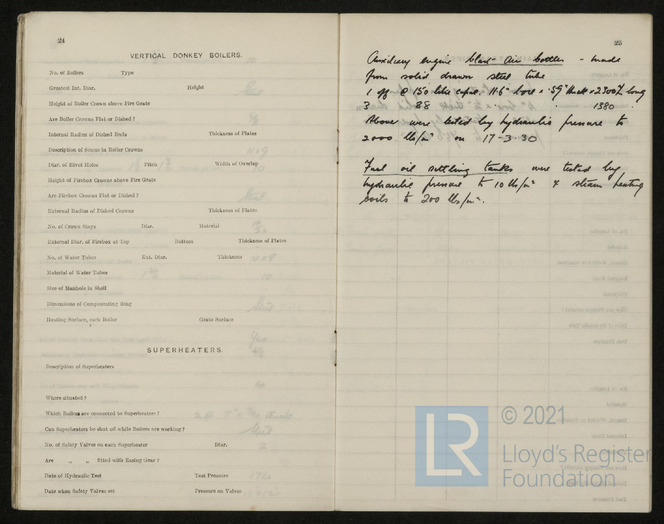 24
VERTICAL DONKEY BOILERS.
No. of Boilers Type
Greatest Int. Diar. Height
Height of Boiler Crown above Fire Grate
Are Boiler Crowns Flat or Dished ?
Internal Radius of Dished Ends Thickness of Plates
Description of Seams in Boiler Crowns
Diar. of Rivet Holes Pitch Width of Overlap
Height of Firebox Crowns above Fire Grate
Are Firebox Crowns Flat or Dished ?
External Radius of Dished Crowns Thickness of Plates
No. of Crown Stays Diar. Material
External Diar. of Firebox at Top Bottom Thickness of Plates
No. of Water Tubes Ext. Diar. Thickness
Material of Water Tubes
Size of Manhole in Shell
Dimensions of Compensating Ring
Heating Surface, each Boiler Grate Surface
SUPERHEATERS.
Description of Superheaters
Where situated ?
Which Boilers are connected to Superheaters ?
Can Superheaters be shut off while Boilers are working ?
No. of Safety Valves on each Superheater Diar.
Are " " fitted with Easing Gear ?
Date of Hydraulic Test Test Pressure
Date when Safety Valves set Pressure on Valves
25
Auxiliary engine blast air bottles - made
from solid drawn steel tube
1 off @ 150 litre capct. 11.5" bore × .59" thick × 2300 long
3 88 " " 1380
Above were tested by hydraulic pressure to
2000 lbs/in² on 17-3-30
Fuel oil settling tanks were tested by
hydraulic pressure to 10 lbs/in² & steam heating
coils to 200 lbs/in².
LR © 2021
Lloyd's Register
Foundation